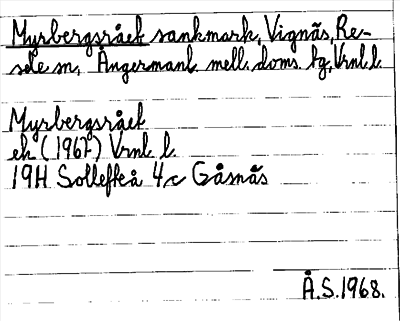 Myrbergsråek sankmark, Vignäs, Re-
sele sn, Ångermanl. mell. doms. tg, Vrnl. l.
Myrbergsråek
ek (1967) Vrnl. l.
19H Sollefteå 4c Gåsnäs
Å.S. 1968.